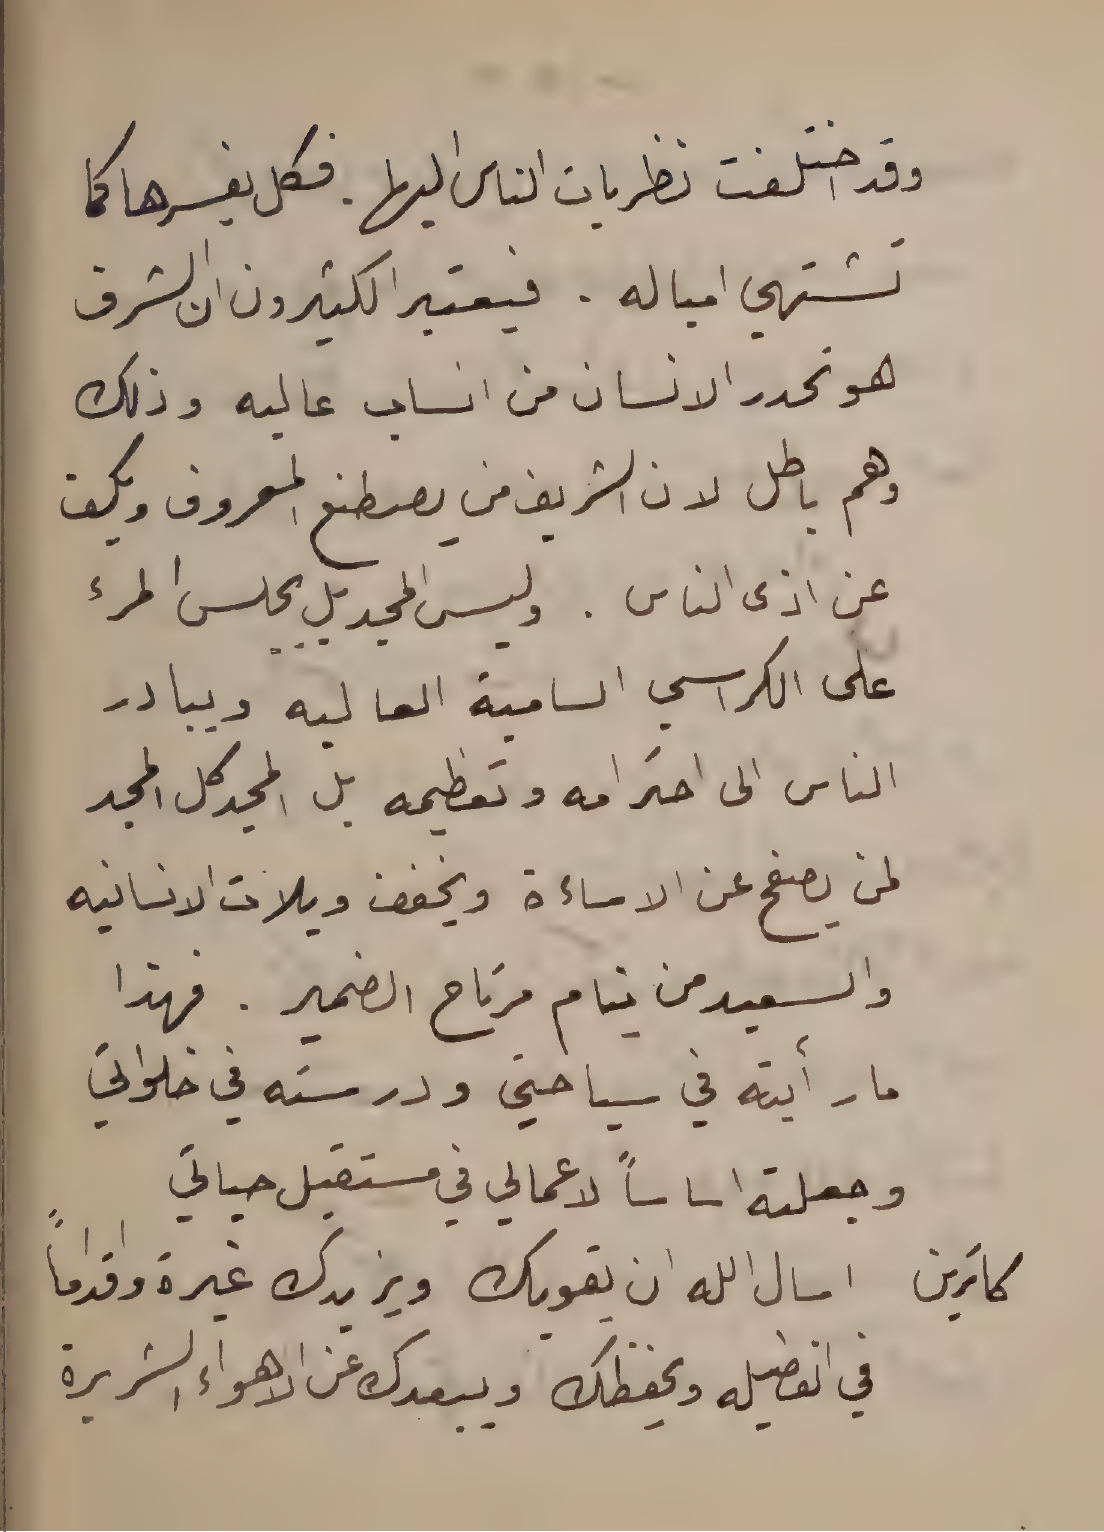 وقد اختلفت نظريات الناس اليها . فكل يفسرها كما
تشتهي امياله . فيعتبر الكثيرون ان الشرف
هو تحدر الانسان من انساب عاليه وذلك
وهم باطل لان الشريف من يصطنع المعروف ويكف
عن اذى الناس . وليس المجد بل يجلس المرء
على الكراسي السامية العاليه ويبادر
الناس الى احترامه وتعظيمه بل المجد كل المجد
لمن يصفح عن الاساءة ويخفف ويلات الانسانيه
والسعيد من ينام مرتاح الضمير . فهذا
ما رأيته في سياحتي ودرسته في خلواتي
وجعلته اساساً لاعمالي في مستقبل حياتي
كاترين اسال الله ان يقويك ويزيدك غيرة واقداماً
في الفضيله ويحفظك ويبعدك عن الاهواء الشريرة